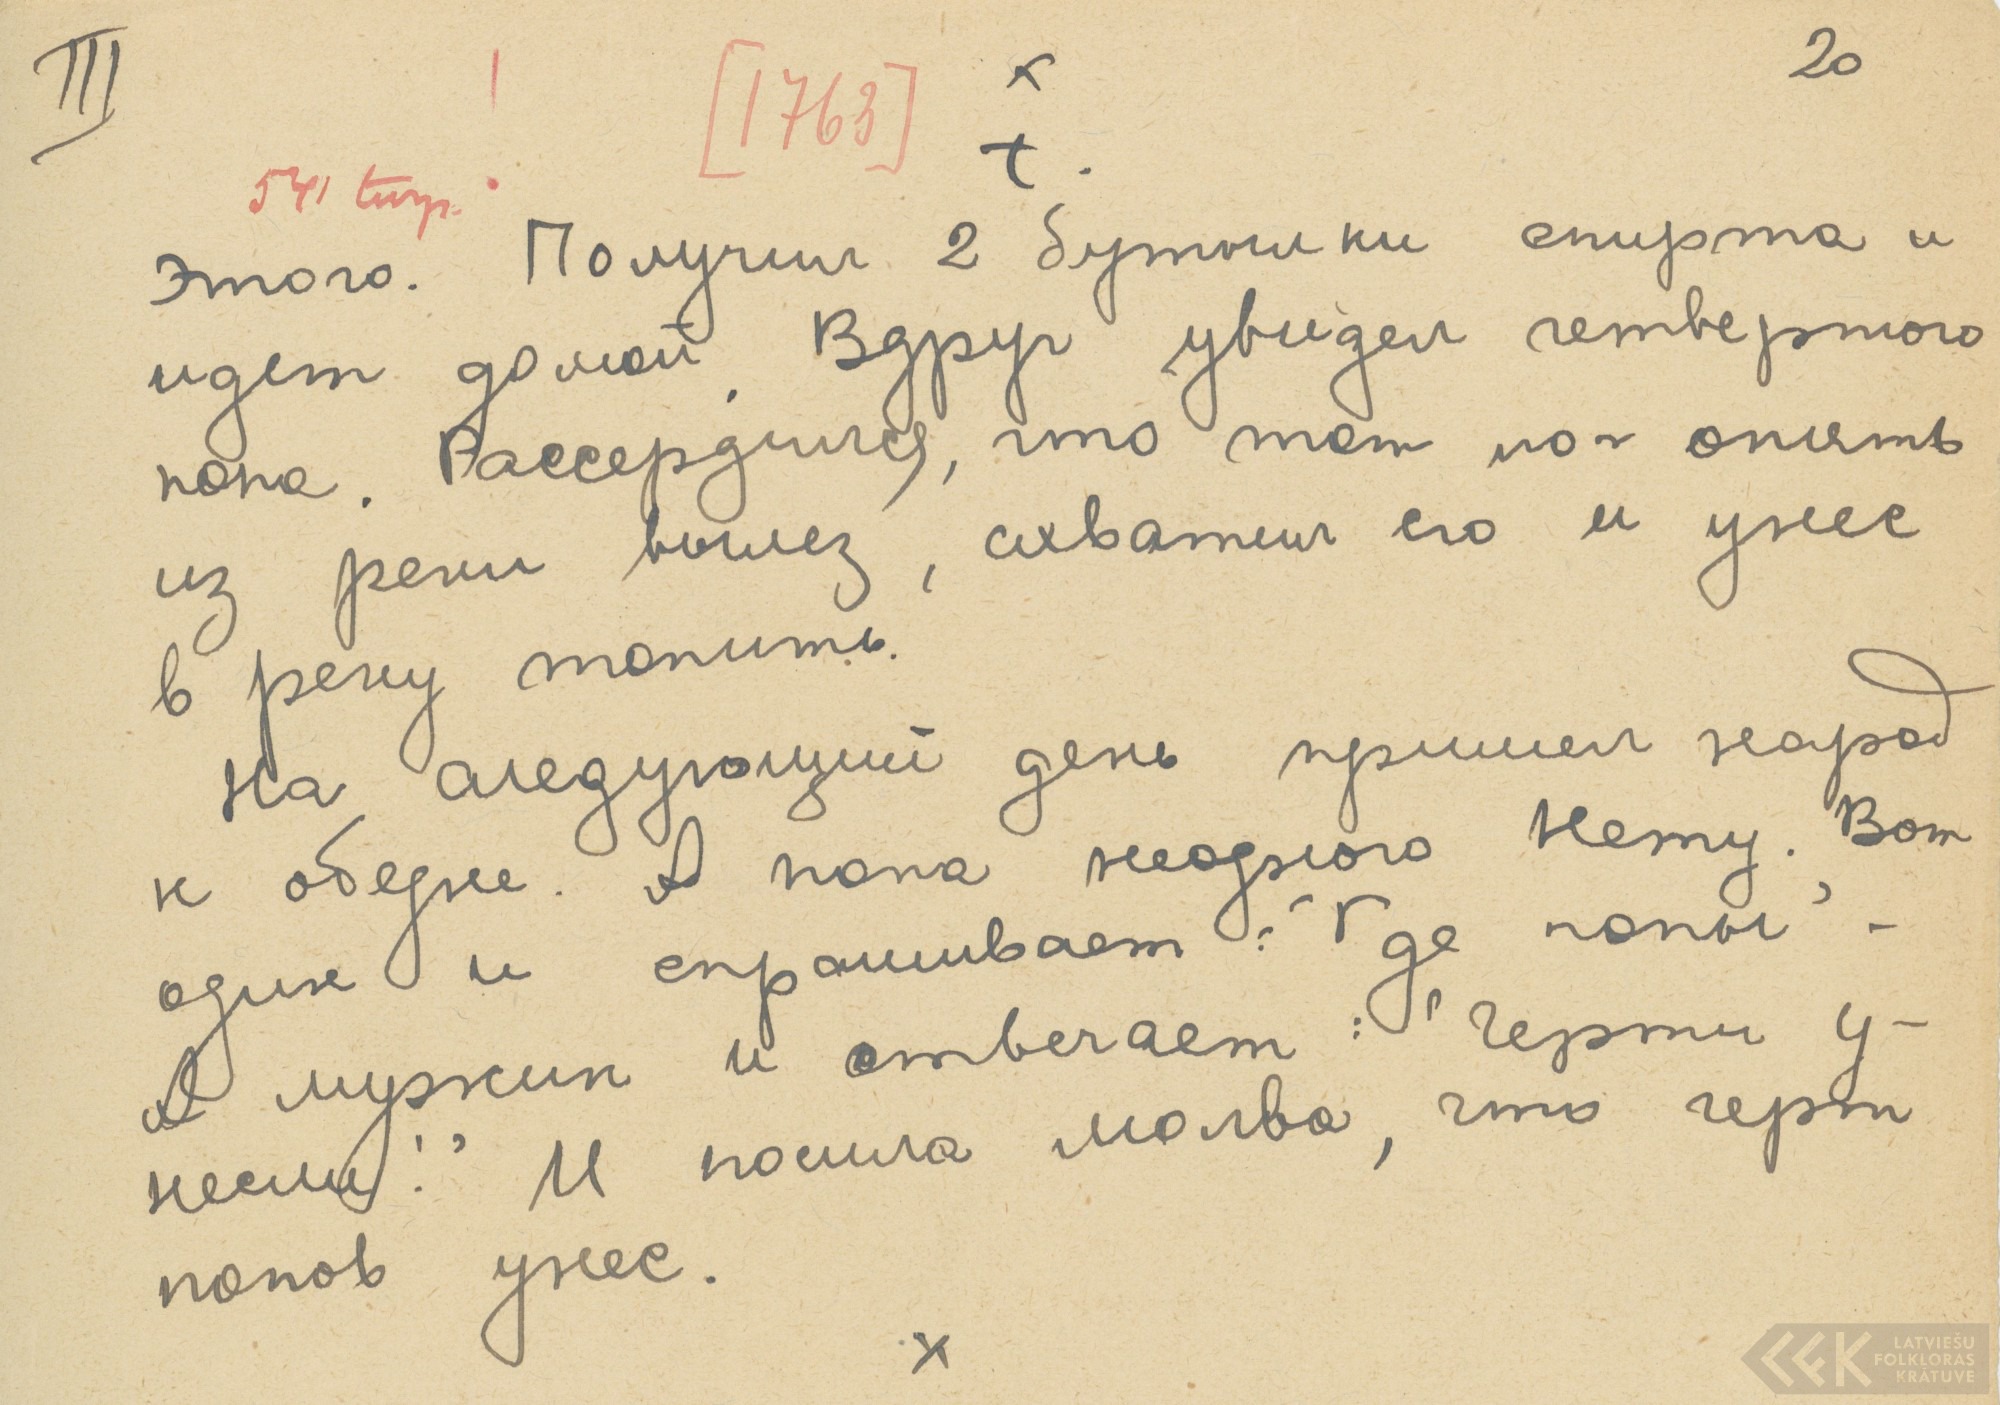 III ! [1763] x 20
541 turp. t.
этого. Получил 2 бутылки спирта и
идет домой. Вдруг увидел четвертого
попа. Рассердился, что тот поп опять
из реки вылез, схватил его и унес
в реку топить.
На следующий день пришел народ
к обедне. А попа неодного нету. Вот
один и спрашивает: "Где попы" -
А мужик и отвечает: "Черти у-
несли!" И пошла молва, что черт
попов унес.
x
LATVIEŠU
FOLKLORAS
KRĀTUVE